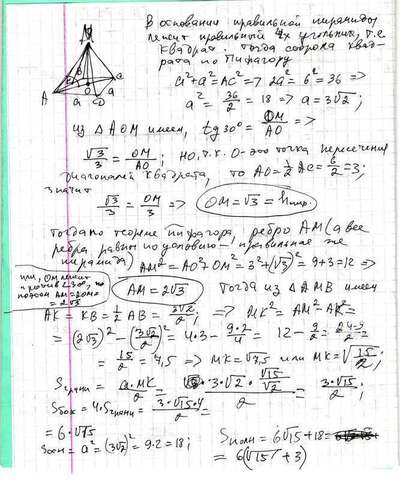 В основании правильной пирамиды
лежит правильный 4х угольник, т.е.
квадрат. Тогда сторона квад-
рата по Пифагору
a²+a²=AC² => 2a²=6²=36 =>
a²=36/2=18 => a=3√2;
из △AOM имеем, tg30°=OM/AO =>
√3/3=OM/AO; но, т.к. O-это точка пересечения
диагоналей квадрата, то AO=½AC=6/2=3;
значит
√3/3=OM/3 => OM=√3=Hпир.
Тогда по теореме Пифагора, ребро AM (а все
ребра равны по условию - правильная же
пирамида) AM²=AO²+OM²=3²+(√3)²=9+3=12 =>
или, OM лежит
против ∠30°,
поэтому AM=2OM=
=2√3
AM=2√3 Тогда из △AMB имеем
AK=KB=½AB=3√2/2; => MK²=AM²-AK²=
=(2√3)²-(3√2/2)²=4·3-9·2/4=12-9/2=24-9/2=
=15/2=7,5 => MK=√7,5 или MK=√15/2;
Sграни=a·MK/2=3·√2·√15/√2/2=3·√15/2;
Sбок=4·Sграни=3·√15·4/2=
=6·√15
Sосн=a²=(3√2)²=9·2=18;
Sполн=6√15+18=
=6(√15+3)
M
A
B
C
D
O
a
a